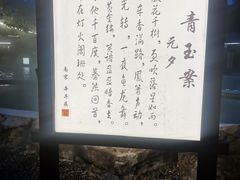 青玉案
元夕
花千树，更吹落星如雨。
车香满路，凤箫声动，
光转，一夜鱼龙舞。
黄金缕，笑语盈盈暗香去。
他千百度，蓦然回首，
在灯火阑珊处。
南宋 辛弃疾